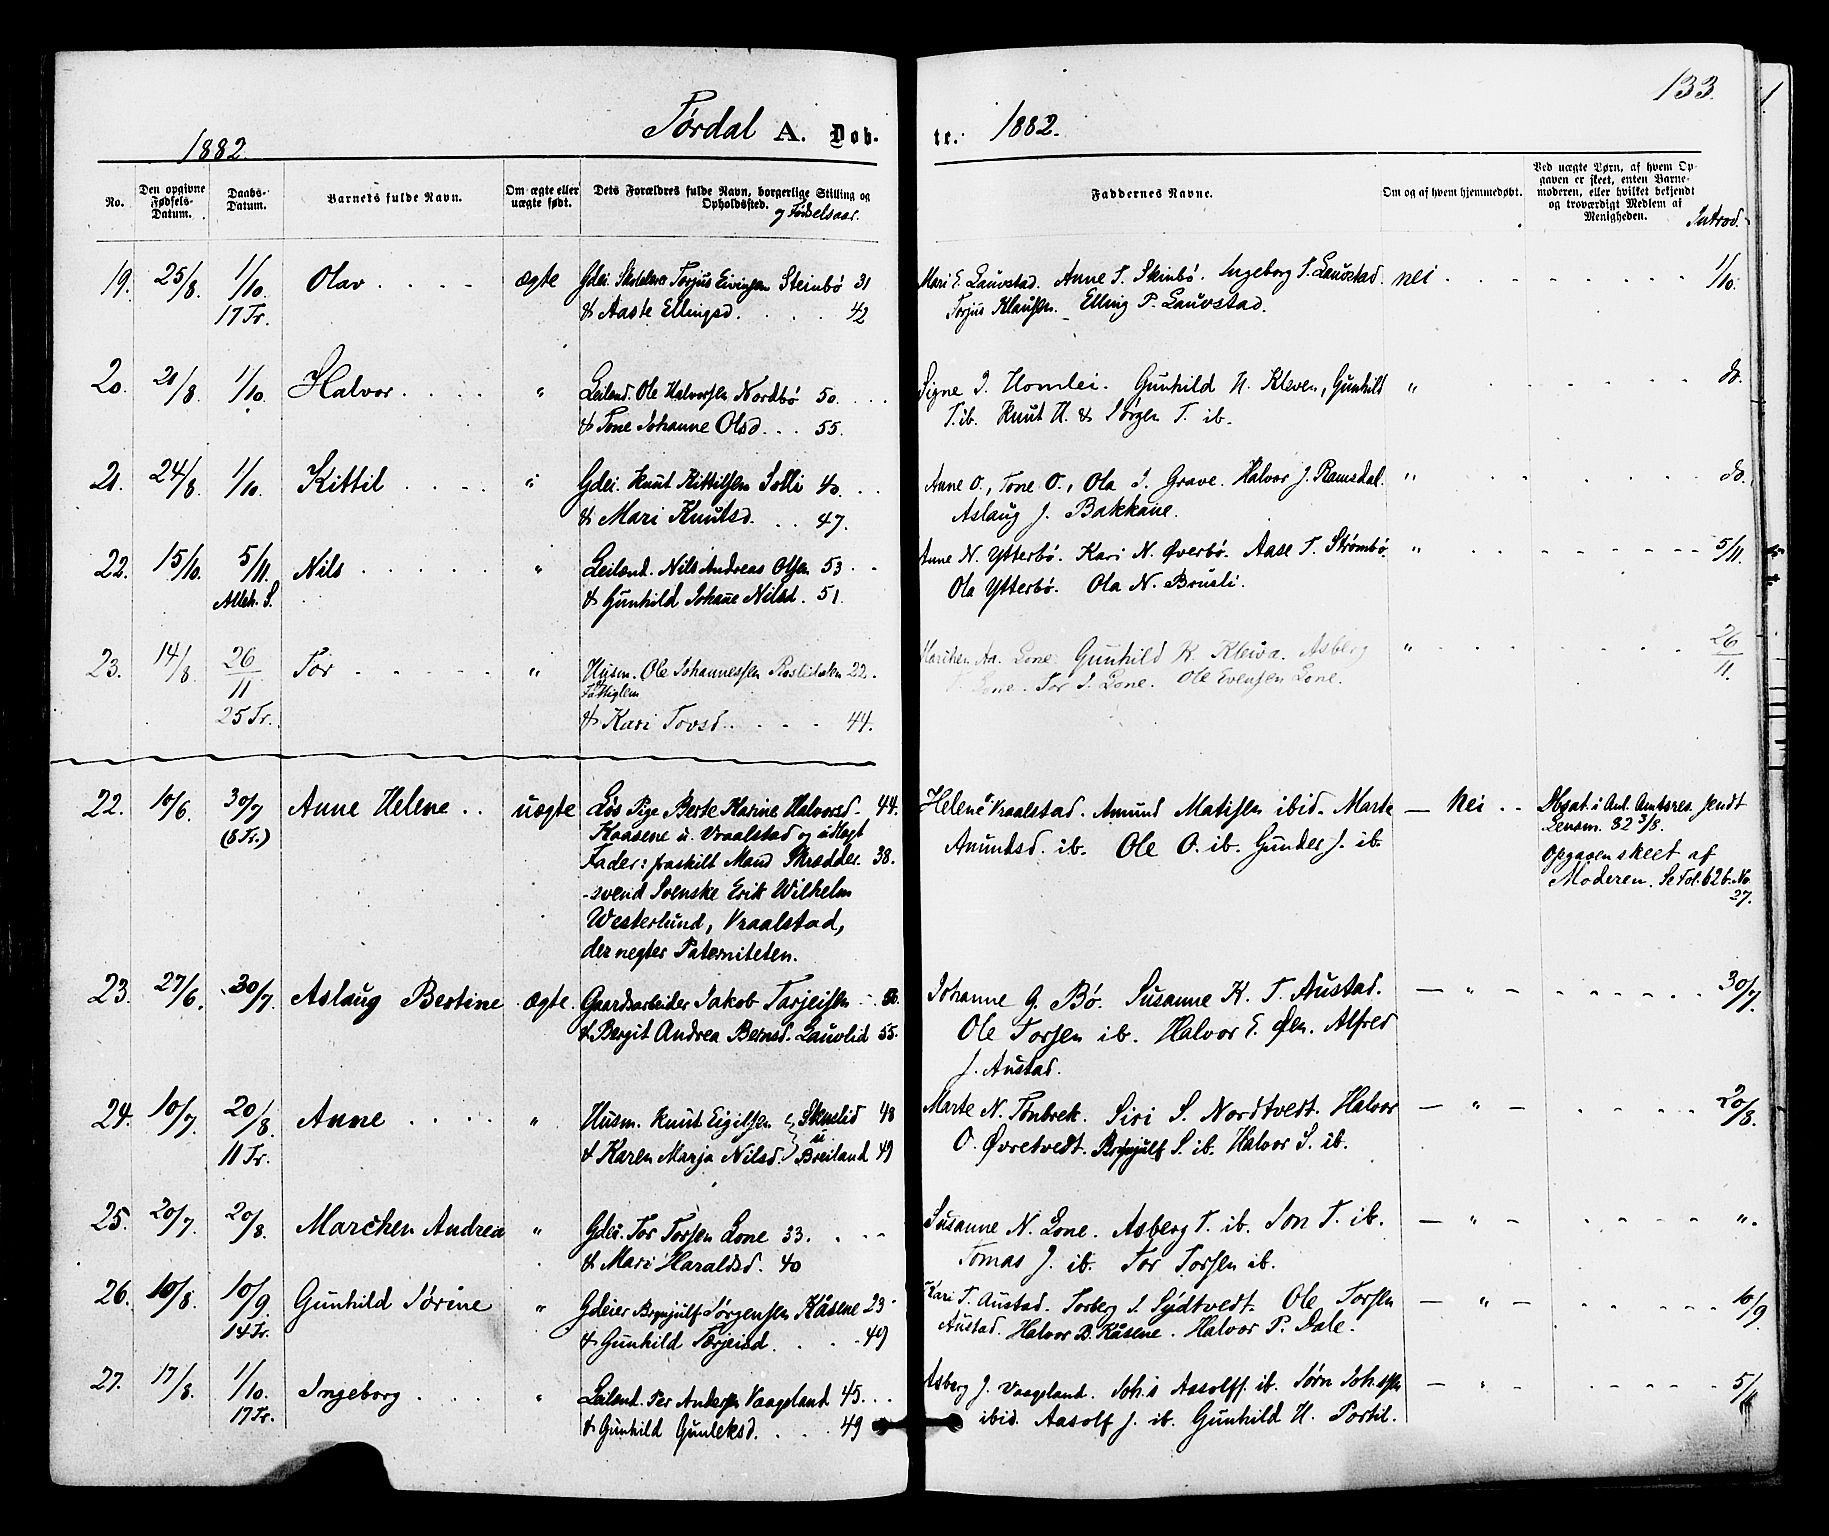 133.
Tørdal A. Døb-
1882.
te. 1882.
No.
Den opgivne Fødsels-Datum.
Daabs-Datum.
Barnets fulde Navn.
Om ægte eller uægte født.
Dets Forældres fulde Navn, borgerlige Stilling og Opholdssted.
og Fødselsaar.
Faddernes Navne.
Om og af hvem hjemmedøbt.
Ved uægte Børn, af hvem Opgaven er skeet, enten Barnemoderen, eller hvilket bekjendt og troværdigt Medlem af Menigheden.
Introd.
19. 25/8. 1/10. Olav . . . . ægte Gdei. Torjus Eivindsen Steinbø 31 Mari E. Lauvstad. Anne T. Skinbø. Ingeborg T. Lauvstad. nei . . . . 1/10.
17 Tr. & Aaste Ellingsd. . . . . 42 Torjus Klausen. Elling P. Lauvstad.
20. 21/8. 1/10. Halvor . . . . " Leilænd. Ole Halvorsen Nordbø 50. . . . Signe J. Homlei. Gunhild H. Kleven, Gunhild " . . . . do.
& Tone Johanne Olsd. . . 55. T. ib. Knut H. & Jørgen T. ib.
21. 24/8. 1/10. Kittil . . . . " Gdei. Knut Kittilsen Solli 40. . . Anne O., Tone O., Ola J. Grave. Halvor J. Ramsdal. " . . . . do.
& Mari Knutsd. . . 47. Aslaug J. Bakkane.
22. 15/10. 5/11. Nils . . . . . " Leilænd. Nils Andreas Olsen 53 . . Anne N. Ytterbø. Kari N. Øverbø. Aase T. Strømbø " . . . . 5/11.
Alleh. S. & Gunhild Johanne Nilsd. 51. Ola Ytterbø. Ola N. Brusli.
23. 14/8. 26/11 Tor . . . . . " Husm. Ole Johannessen 22. Marichen Aa. Lone. Gunhild K. Kleiva. Asberg " . . . . 26/11.
Fattiglem Lone. Tor J. Lone. Ole Evensen Lone.
25 Tr. & Kari Tovsd. . . . . 44.
22. 10/6. 30/7 Anne Helene . . uægte Løs Pige Berte Karine Halvorsd. 44. Helene Vraalstad. Amund Matisen ibid. Marte — Nei . . Obsat. i Ant. Amtsres. sendt
(8 Tr.) Kaasene u. Vraalstad og udlagt Amundsd. ib. Ole O. ib. Gunder J. ib. Lensm. 82 3/8.
Fader: fraskilt Mand Skrædder- 38. Opgaven skeet af
-svend Svenske Erik Wilhelm Moderen. Se Fol. 626. No
Westerlund, Vraalstad, 27.
der negter Paterniteten.
23. 27/6. 30/7. Aslaug Bertine ægte. Gaardsarbeider Jakob Tarjeisen . . Johanne G. Bø. Susanne K. T. Austad. — " — . . . . 30/7
& Bergit Andrea Berntsd. Lauvlid 55. Ole Torsen ib. Halvor E. Øen. Alfred
J. Austad.
24. 10/7. 20/8. Anne . . . . " Husm. Knut Eigilsen 48 Marte N. Tønbrek. Siri S. Nordtvedt. Halvor — " — . . . . 20/8.
11 Tr. & Karen Marja Nilsd. u Breiland 49 O. Øvretvedt. Brynjulf S. ib. Halvor S. ib.
25. 20/7. 20/8. Marchen Andrea " Gdei. Tor Torsen Lone 33. . . . Susanne N. Lone. Asberg T. ib. Jon T. ib. — " — . . . . ".
& Mari Haraldsd. 40 Tomas J. ib. Tor Torsen ib.
26. 10/8. 10/9 Gunhild Jørine " Gdeier Brynjulf Jørgensen Kåsene 23 Kari T. Austad. Torberg J. Sydtvedt. Ole Torsen — " — . . . . 10/9
14 Tr. & Gunhild Tarjeisd. . . . 49 Austad. Halvor B. Kåsene. Halvor P. Dale.
27. 17/8. 1/10. Ingeborg . . . " Leilænd. Per Anderson Vaagsland 45. . . Asberg J. Vaagsland. Joh.s Aasolfs. ib. Jørn Joh.ssen — " — . . . . 5/11
17 Tr. & Gunhild Gunleksd. . . . 49 ibid. Aasolf J. ib. Gunhild H. Portil.